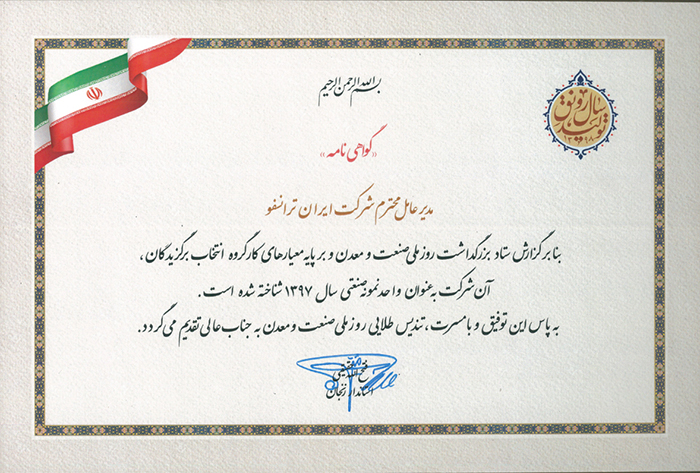 بسم الله الرحمن الرحیم
سال رونق
تولید
۱۳۹۸
«گواهی نامه»
مدیر عامل محترم شرکت ایران ترانسفو
بنا بر گزارش ستاد بزرگداشت روز ملی صنعت و معدن و بر پایه معیارهای کارگروه انتخاب برگزیدگان ،
آن شرکت به عنوان واحد نمونه صنعتی سال ۱۳۹۷ شناخته شده است .
به پاس این توفیق و با مسرت ، تندیس طلایی روز ملی صنعت و معدن به جناب عالی تقدیم می گردد.
فتح الله حقیقی
استاندار زنجان